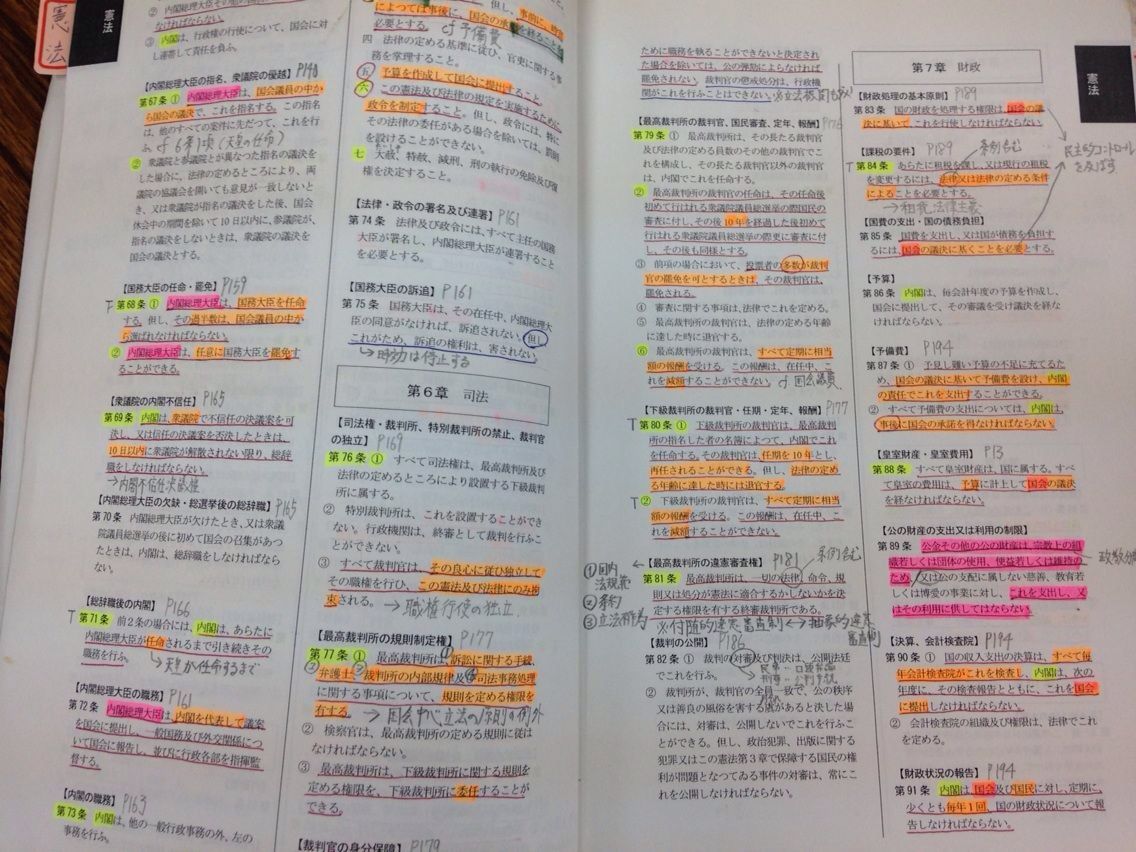 憲法
憲法
② 内閣総理大臣その他の国
なければならない。
③ 内閣は、行政権の行使について、国会に対
し連帯して責任を負ふ。
【内閣総理大臣の指名、衆議院の優越】P148
第67条 ① 内閣総理大臣は、国会議員の中か
ら国会の議決で、これを指名する。この指名
は、他のすべての案件に先だつて、これを行
ふ。cf 6条1項(天皇の任命)
② 衆議院と参議院とが異なつた指名の議決を
した場合に、法律の定めるところにより、両
議院の協議会を開いても意見が一致しないと
き、又は衆議院が指名の議決をした後、国会
休会中の期間を除いて10日以内に、参議院が、
指名の議決をしないときは、衆議院の議決を
国会の議決とする。
【国務大臣の任命・罷免】P159
T
第68条 ① 内閣総理大臣は、国務大臣を任命
する。但し、その過半数は、国会議員の中か
ら選ばれなければならない。
② 内閣総理大臣は、任意に国務大臣を罷免す
ることができる。
【衆議院の内閣不信任】P165
第69条 内閣は、衆議院で不信任の決議案を可
決し、又は信任の決議案を否決したときは、
10日以内に衆議院が解散されない限り、総辞
職をしなければならない。
→内閣不信任決議権
【内閣総理大臣の欠缺・総選挙後の総辞職】P165
第70条 内閣総理大臣が欠けたとき、又は衆議
院議員総選挙の後に初めて国会の召集があつ
たときは、内閣は、総辞職をしなければなら
ない。
【総辞職後の内閣】P166
T
第71条 前2条の場合には、内閣は、あらたに
内閣総理大臣が任命されるまで引き続きその
職務を行ふ。
→天皇が任命するまで
【内閣総理大臣の職務】P161
第72条 内閣総理大臣は、内閣を代表して議案
を国会に提出し、一般国務及び外交関係につ
いて国会に報告し、並びに行政各部を指揮監
督する。
【内閣の職務】P163
第73条 内閣は、他の一般行政事務の外、左の
事務を行ふ。
但し、事前に、時宜
によつては事後に、国会の承認を経ることを
必要とする。cf 予備費
四 法律の定める基準に従ひ、官吏に関する事
務を掌理すること。
五 予算を作成して国会に提出すること。
六 この憲法及び法律の規定を実施するために、
政令を制定すること。但し、政令には、特に
その法律の委任がある場合を除いては、罰則
を設けることができない。
七 大赦、特赦、減刑、刑の執行の免除及び復
権を決定すること。
【法律・政令の署名及び連署】P161
第74条 法律及び政令には、すべて主任の国務
大臣が署名し、内閣総理大臣が連署すること
を必要とする。
【国務大臣の訴追】P161
第75条 国務大臣は、その在任中、内閣総理大
臣の同意がなければ、訴追されない。但し、
これがため、訴追の権利は、害されない。
→時効は停止する
第6章 司法
【司法権・裁判所、特別裁判所の禁止、裁判官
の独立】P169
第76条 ① すべて司法権は、最高裁判所及び
法律の定めるところにより設置する下級裁判
所に属する。
② 特別裁判所は、これを設置することができ
ない。行政機関は、終審として裁判を行ふこ
とができない。
③ すべて裁判官は、その良心に従ひ独立して
その職権を行ひ、この憲法及び法律にのみ拘
束される。→職権行使の独立
【最高裁判所の規則制定権】P177
第77条 ① 最高裁判所は、訴訟に関する手続、
弁護士、裁判所の内部規律及び司法事務処理
に関する事項について、規則を定める権限を
有する。→国会中心立法の原則の例外
② 検察官は、最高裁判所の定める規則に従は
なければならない。
③ 最高裁判所は、下級裁判所に関する規則を
定める権限を、下級裁判所に委任することが
できる。
【裁判官の身分保障】P179
ために職務を執ることができないと決定され
た場合を除いては、公の弾劾によらなければ
罷免されない。裁判官の懲戒処分は、行政機
関がこれを行ふことはできない。
【最高裁判所の裁判官、国民審査、定年、報酬】P176
第79条 ① 最高裁判所は、その長たる裁判官
及び法律の定める員数のその他の裁判官でこ
れを構成し、その長たる裁判官以外の裁判官
は、内閣でこれを任命する。
② 最高裁判所の裁判官の任命は、その任命後
初めて行はれる衆議院議員総選挙の際国民の
審査に付し、その後10年を経過した後初めて
行はれる衆議院議員総選挙の際更に審査に付
し、その後も同様とする。
③ 前項の場合において、投票者の多数が裁判
官の罷免を可とするときは、その裁判官は、
罷免される。
④ 審査に関する事項は、法律でこれを定める。
⑤ 最高裁判所の裁判官は、法律の定める年齢
に達した時に退官する。
⑥ 最高裁判所の裁判官は、すべて定期に相当
額の報酬を受ける。この報酬は、在任中、こ
れを減額することができない。cf 国会議員
【下級裁判所の裁判官・任期・定年、報酬】P177
T
第80条 ① 下級裁判所の裁判官は、最高裁判
所の指名した者の名簿によつて、内閣でこれ
を任命する。その裁判官は、任期を10年とし、
再任されることができる。但し、法律の定め
る年齢に達した時には退官する。
T
② 下級裁判所の裁判官は、すべて定期に相当
額の報酬を受ける。この報酬は、在任中、こ
れを減額することができない。
【最高裁判所の違憲審査権】P181 条例含む
第81条 最高裁判所は、一切の法律、命令、規
則又は処分が憲法に適合するかしないかを決
定する権限を有する終審裁判所である。
①国内法規案
②条約
③立法行為
※付随的違憲審査制↔抽象的違憲審査制
【裁判の公開】P186
第82条 ① 裁判の対審及び判決は、公開法廷
でこれを行ふ。
民事…口頭弁論
刑事…公判手続
② 裁判所が、裁判官の全員一致で、公の秩序
又は善良の風俗を害する虞があると決した場
合には、対審は、公開しないでこれを行ふこ
とができる。但し、政治犯罪、出版に関する
犯罪又はこの憲法第3章で保障する国民の権
利が問題となつてゐる事件の対審は、常にこ
れを公開しなければならない。
第7章 財政
憲法
【財政処理の基本原則】P189
第83条 国の財政を処理する権限は、国会の議
決に基いて、これを行使しなければならない。
【課税の要件】P189 条例含む
T
第84条 あらたに租税を課し、又は現行の租税
を変更するには、法律又は法律の定める条件
によることを必要とする。
→租税法律主義
民主的コントロール
を及ぼす
【国費の支出・国の債務負担】
第85条 国費を支出し、又は国が債務を負担す
るには、国会の議決に基くことを必要とする。
【予算】
第86条 内閣は、毎会計年度の予算を作成し、
国会に提出して、その審議を受け議決を経な
ければならない。
【予備費】P194
第87条 ① 予見し難い予算の不足に充てるた
め、国会の議決に基いて予備費を設け、内閣
の責任でこれを支出することができる。
② すべて予備費の支出については、内閣は、
事後に国会の承諾を得なければならない。
【皇室財産・皇室費用】P13
第88条 すべて皇室財産は、国に属する。すべ
て皇室の費用は、予算に計上して国会の議決
を経なければならない。
【公の財産の支出又は利用の制限】
第89条 公金その他の公の財産は、宗教上の組
織若しくは団体の使用、便益若しくは維持の
ため、又は公の支配に属しない慈善、教育若
しくは博愛の事業に対し、これを支出し、又
はその利用に供してはならない。
政教分離
【決算、会計検査院】P194
第90条 ① 国の収入支出の決算は、すべて毎
年会計検査院がこれを検査し、内閣は、次の
年度に、その検査報告とともに、これを国会
に提出しなければならない。
② 会計検査院の組織及び権限は、法律でこれ
を定める。
【財政状況の報告】P194
第91条 内閣は、国会及び国民に対し、定期に、
少くとも毎年1回、国の財政状況について報
告しなければならない。